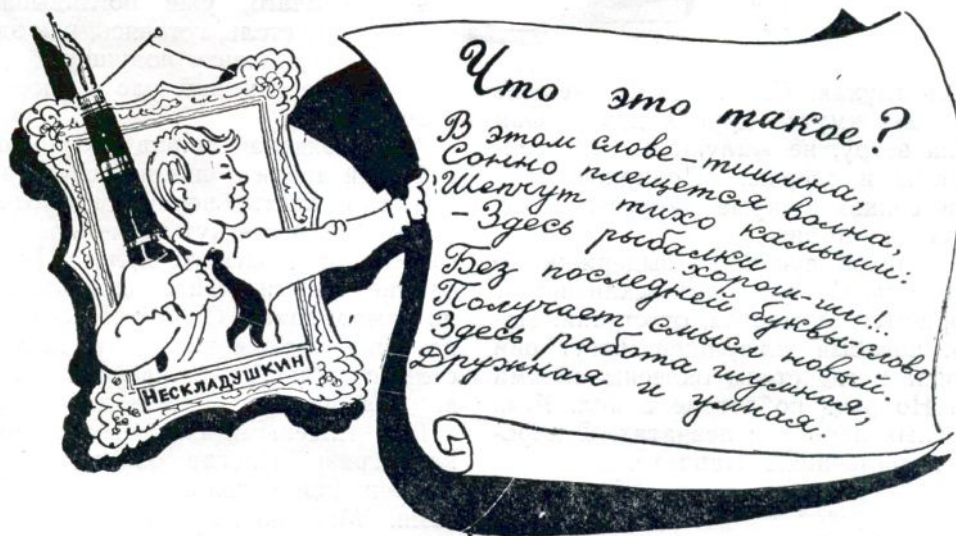 Что это такое?
В этом слове–тишина,
Сонно плещется волна,
Шепчут тихо камыши:
– Здесь рыбалки хорош-ши!..
Без последней буквы–слово
Получает смысл новый.
Здесь работа шумная,
Дружная и умная.
НЕСКЛАДУШКИН